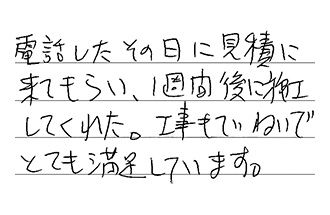 電話したその日に見積に
来てもらい、1週間後に施工
してくれた。工事もていねいで
とても満足しています。